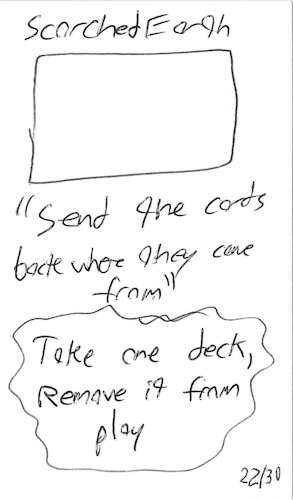 Scorched Earth
"Send the cards
back where they came
from"
Take one deck,
Remove it from
play
22/30